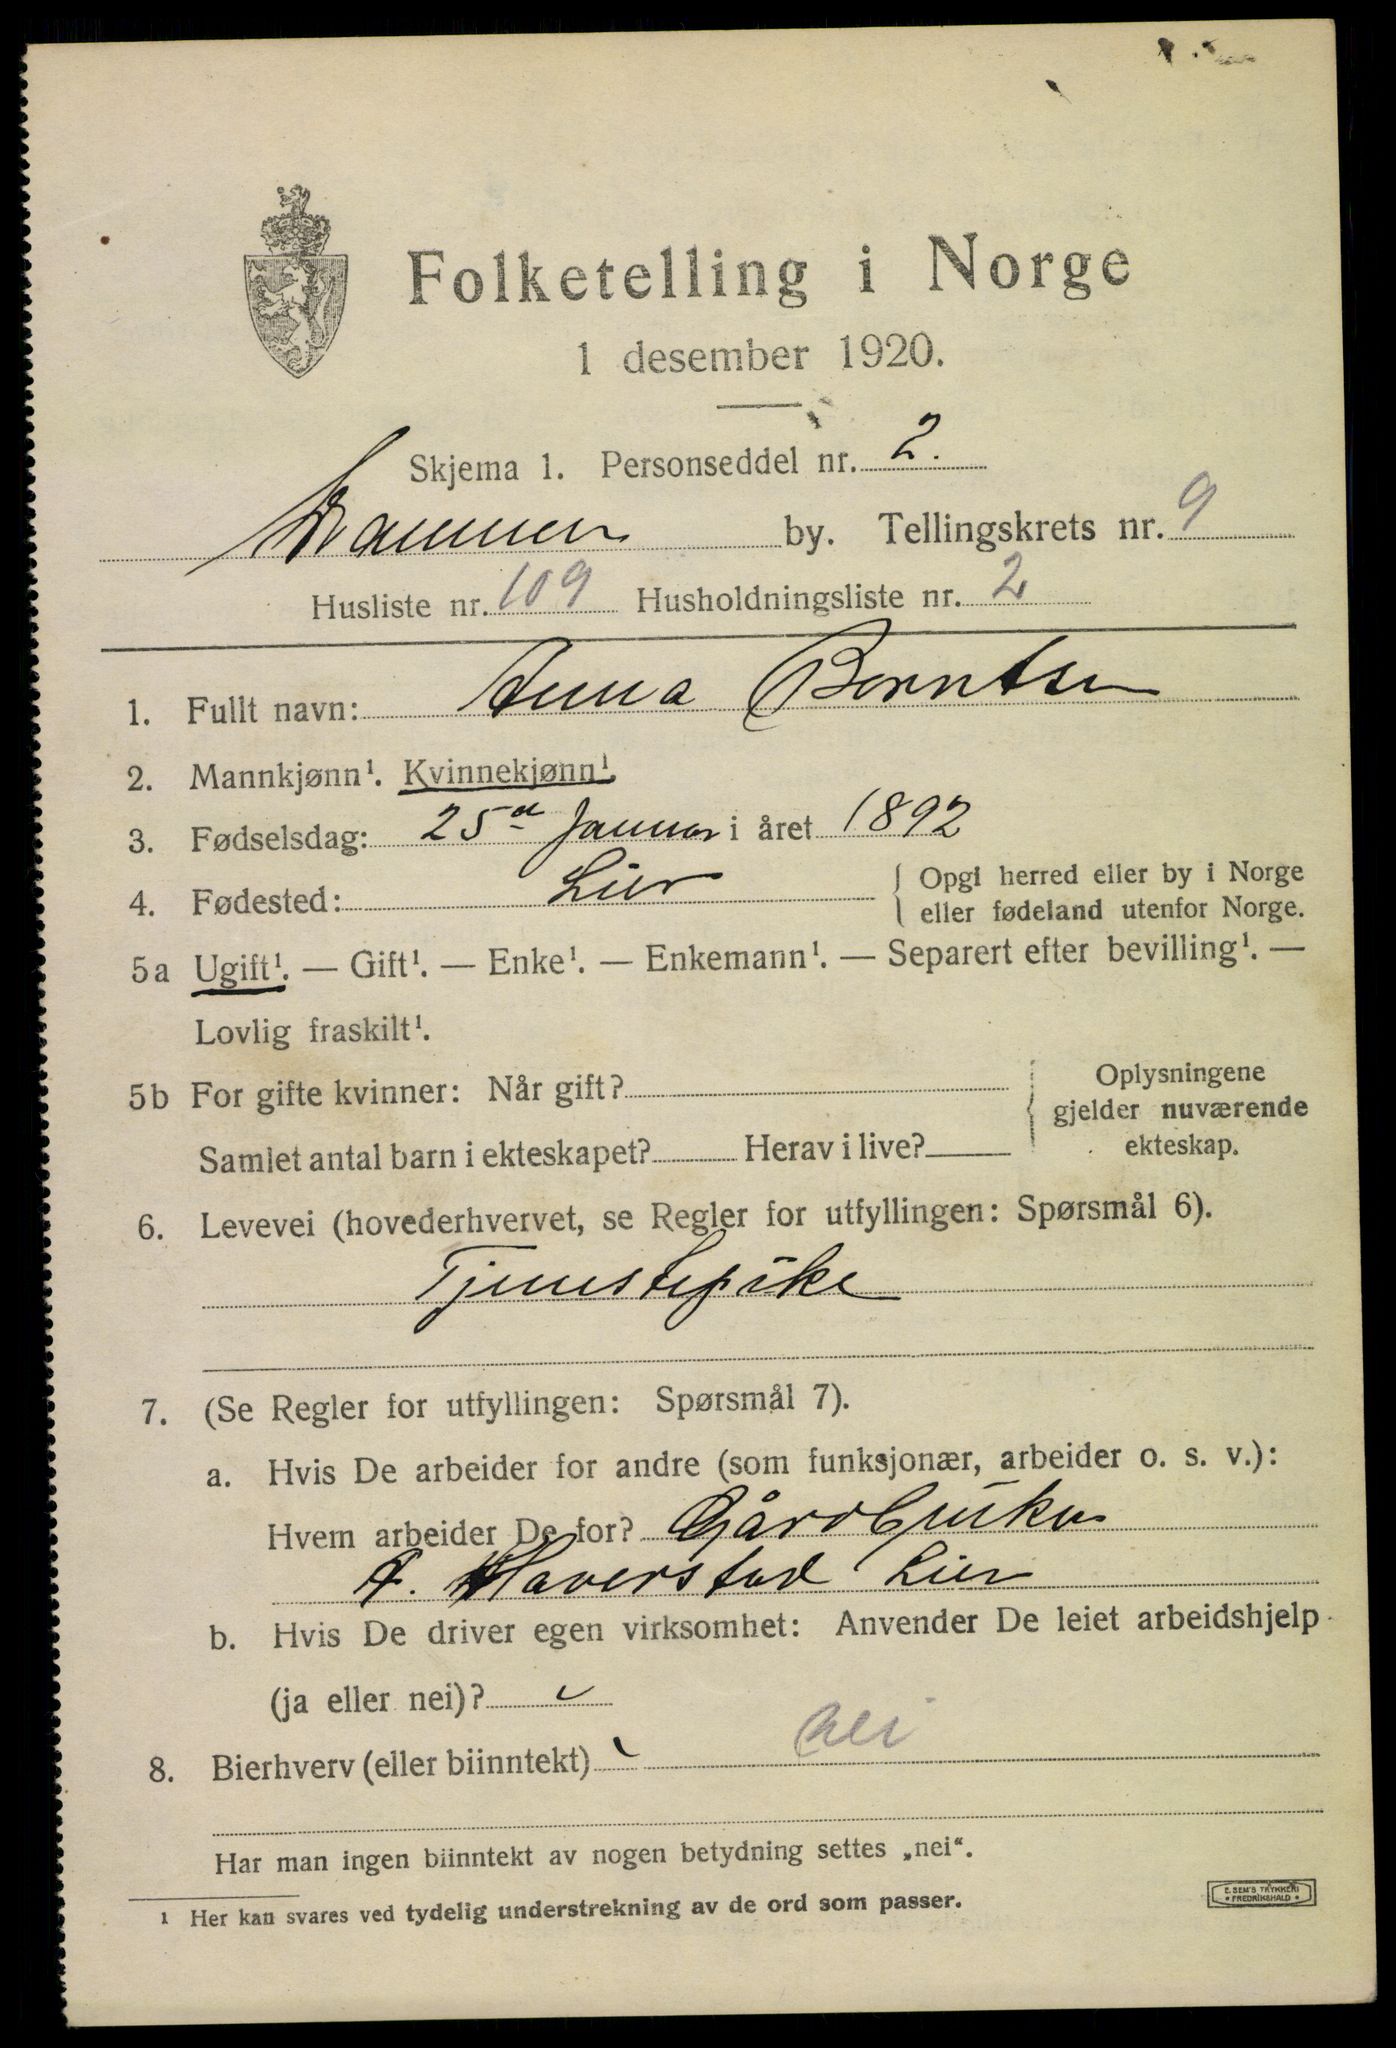 Folketelling i Norge
1 desember 1920.
Skjema 1. Personseddel nr. 2.
Drammen by. Tellingskrets nr. 9
Husliste nr. 109 Husholdningsliste nr. 2
1. Fullt navn: Anna Berntsen
2. Mannkjønn¹. Kvinnekjønn¹.
3. Fødselsdag: 25de Januar i året 1892
4. Fødested: Lier { Opgi herred eller by i Norge
eller fødeland utenfor Norge.
5a Ugift¹. — Gift¹. — Enke¹. — Enkemann¹. — Separert efter bevilling¹. —
Lovlig fraskilt¹.
5b For gifte kvinner: Når gift? { Oplysningene
gjelder nuværende
Samlet antal barn i ekteskapet? Herav i live? ekteskap.
6. Levevei (hovederhvervet, se Regler for utfyllingen: Spørsmål 6).
Tjenestepike
7. (Se Regler for utfyllingen: Spørsmål 7).
a. Hvis De arbeider for andre (som funksjonær, arbeider o. s. v.):
Hvem arbeider De for? Gårdbruker
A. Haverstad Lier
b. Hvis De driver egen virksomhet: Anvender De leiet arbeidshjelp
(ja eller nei)?
8. Bierhverv (eller biinntekt) nei
Har man ingen biinntekt av nogen betydning settes „nei“.
1 Her kan svares ved tydelig understrekning av de ord som passer.
E. SEM'S TRYKKERI
• FREDRIKSHALD •